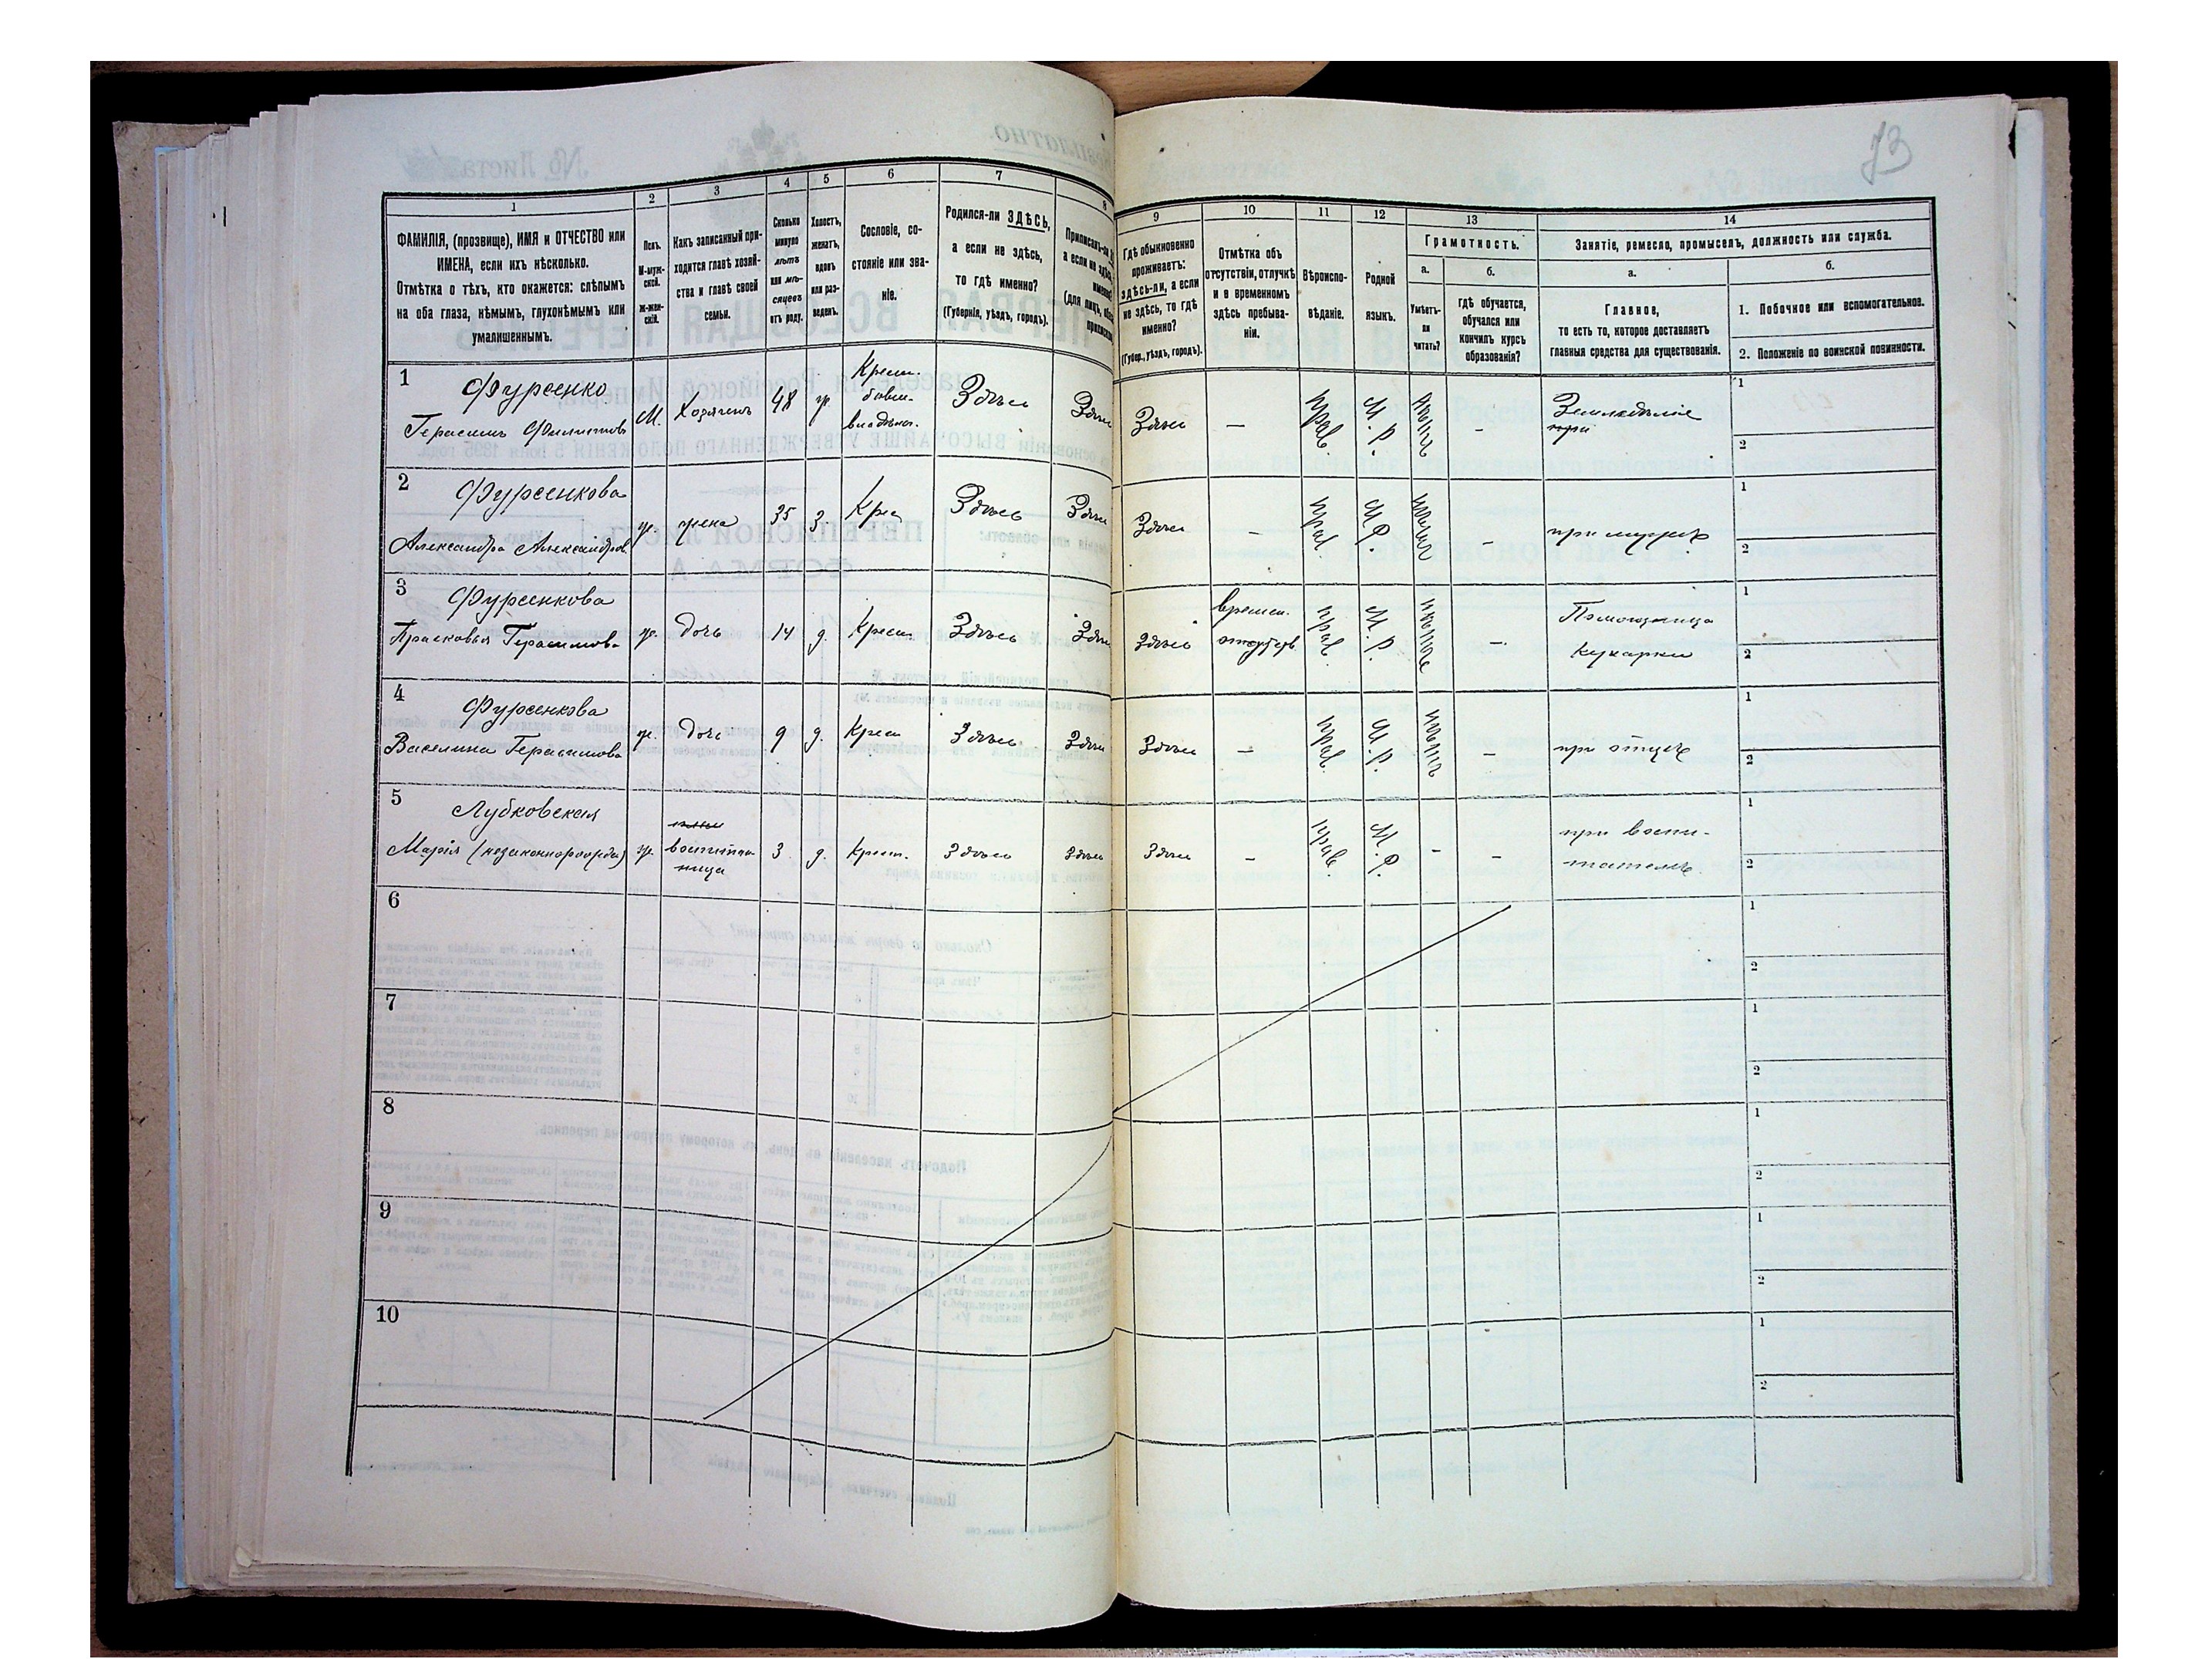 73
1
2
3
4
5
6
7
8
9
10
11
12
13
14
ФАМИЛІЯ, (прозвище), ИМЯ и ОТЧЕСТВО или
ИМЕНА, если ихъ нѣсколько.
Отмѣтка о тѣхъ, кто окажется: слѣпымъ
на оба глаза, нѣмымъ, глухонѣмымъ или
умалишеннымъ.
Полъ.
М-муж-
ской.
Ж-жен-
скій.
Какъ записанный при-
ходится главѣ хозяй-
ства и главѣ своей
семьи.
Сколько
минуло
лѣтъ
или мѣ-
сяцевъ
отъ роду.
Холостъ,
женатъ,
вдовъ
или раз-
веденъ.
Сословіе, со-
стояніе или зва-
ніе.
Родился-ли ЗДѢСЬ,
а если не здѣсь,
то гдѣ именно?
(Губернія, уѣздъ, городъ).
Гдѣ обыкновенно
проживаетъ:
здѣсь-ли, а если
не здѣсь, то гдѣ
именно?
(Губер., уѣздъ, городъ).
Отмѣтка объ
отсутствіи, отлучкѣ
и о временномъ
здѣсь пребыва-
ніи.
Вѣроиспо-
вѣданіе.
Родной
языкъ.
Грамотность.
а.
Умѣетъ-
ли
читать?
б.
гдѣ обучается,
обучался или
кончилъ курсъ
образованія?
Занятіе, ремесло, промыселъ, должность или служба.
а.
Главное,
то есть то, которое доставляетъ
главныя средства для существованія.
б.
1. Побочное или вспомогательное.
2. Положеніе по воинской повинности.
1
Фурсенко
Герасимъ Филиповъ
М. Хозяинъ 48 ж.
Крест.
бывш.
владѣльч.
Здѣсь Здѣсь Здѣсь — Прав. М. Р. нѣтъ —
Земледѣліе
при
1
2
2
Фурсенкова
Александра Александров.
ж. жена 35 З. Крес Здѣсь Здѣсь Здѣсь — Прав. М. Р. нѣтъ — при мужѣ
1
2
3
Фурсенкова
Прасковья Герасимова
ж. дочь 14 д. Крест. Здѣсь Здѣсь Здѣсь
времен.
отсутств.
прав. М. Р. —
Помощница
Кухарки
1
2
4
Фурсенкова
Василина Герасимова
ж. дочь 9 д. Крест Здѣсь Здѣсь Здѣсь — прав. М. Р. нѣтъ — при отцѣ
1
2
5
Лубковская
Марія (незаконнорожд.)
ж.
воспитан-
ница
3 д. Крест. Здѣсь Здѣсь Здѣсь — прав. М. Р. - —
при воспи-
тателѣ.
1
2
6
1
2
7
1
2
8
1
2
9
1
2
10
1
2